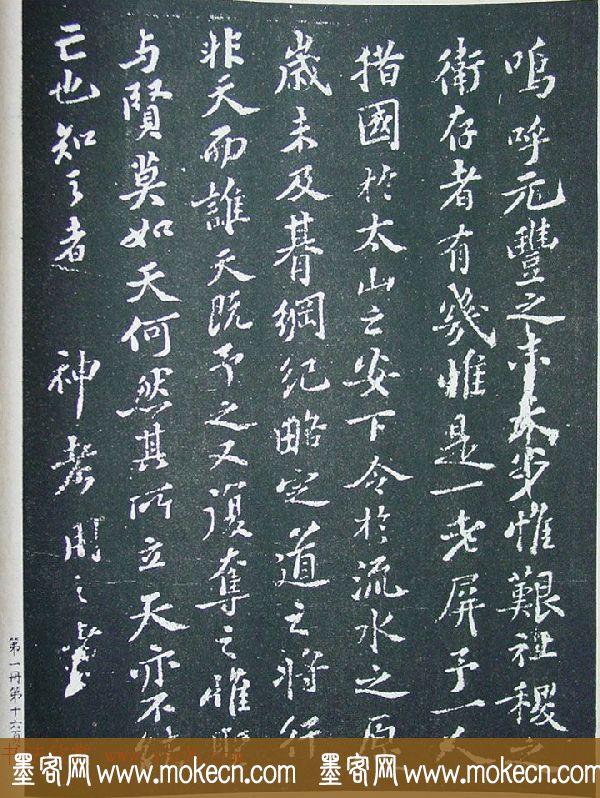 嗚呼元豐之末天步惟艱社稷之
衛存者有幾惟是一老屏予一人
措國於太山之安下令於流水之原
歲未及朞綱紀略定道之將行
非天而誰天既予之又復奪之惟聖
与賢莫如天何然其所立天亦不能
亡也知之者 神考用之
第一冊第十六頁
墨客网 www.mokecn.com 墨客网 www.mokecn.com